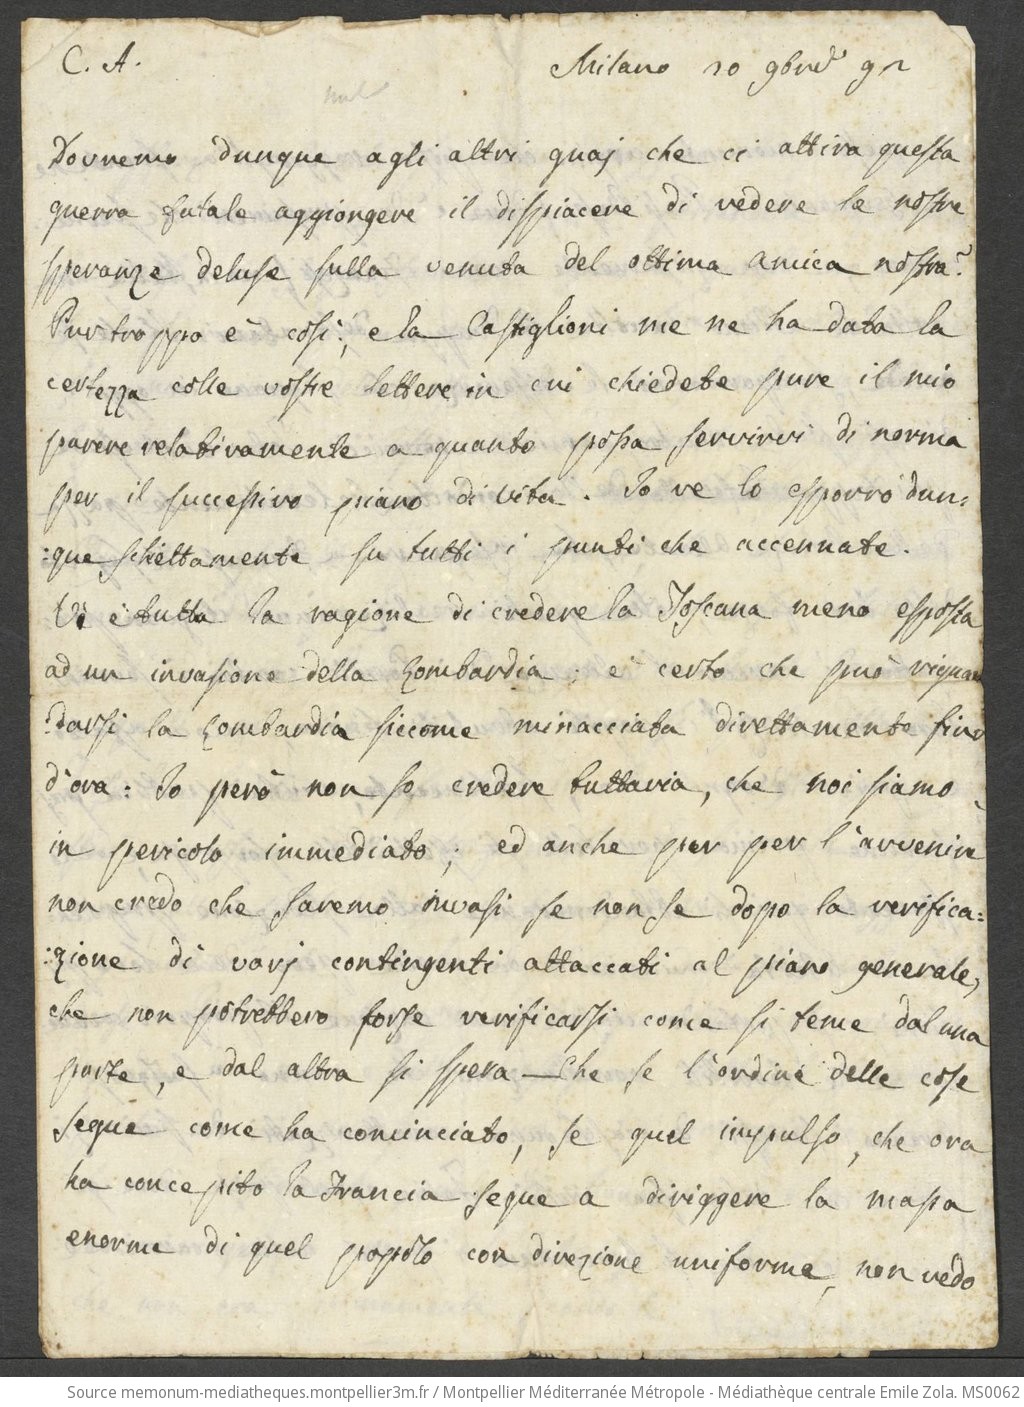 C. A.
Milano 20 9bre 92
Dovremo dunque agli altri guaj che ci attira questa
guerra fatale aggiongere il dispiacere di vedere le nostre
speranze deluse sulla venuta del ottima amica nostra?
Pur troppo è così, e la Castiglioni me ne ha data la
certezza colle vostre lettere in cui chiedete pure il mio
parere relativamente a quanto possa servirvi di norma
per il successivo piano di vita. Io ve lo esporrò dun=
:que schiettamente su tutti i punti che accennate.
Vi è tutta la ragione di credere la Toscana meno esposta
ad un invasione della Lombardia; e certo che può riguar
:darsi la Lombardia siccome minacciata direttamente fino
d'ora: Io però non so credere tuttavia, che noi siamo
in pericolo immediato; ed anche pur per l'avvenire
non credo che saremo invasi se non se dopo la verifica=
:zione di varj contingenti attaccati al piano generale,
che non potrebbero forse verificarsi come si teme dal una
parte, e dal altra si spera — Che se l'ordine delle cose
segue come ha cominciato, se quel impulso, che ora
ha concepito la Francia segue a diriggere la massa
enorme di quel popolo con direzione uniforme, non vedo
Source memonum-mediatheques.montpellier3m.fr / Montpellier Méditerranée Métropole - Médiathèque centrale Emile Zola. MS0062